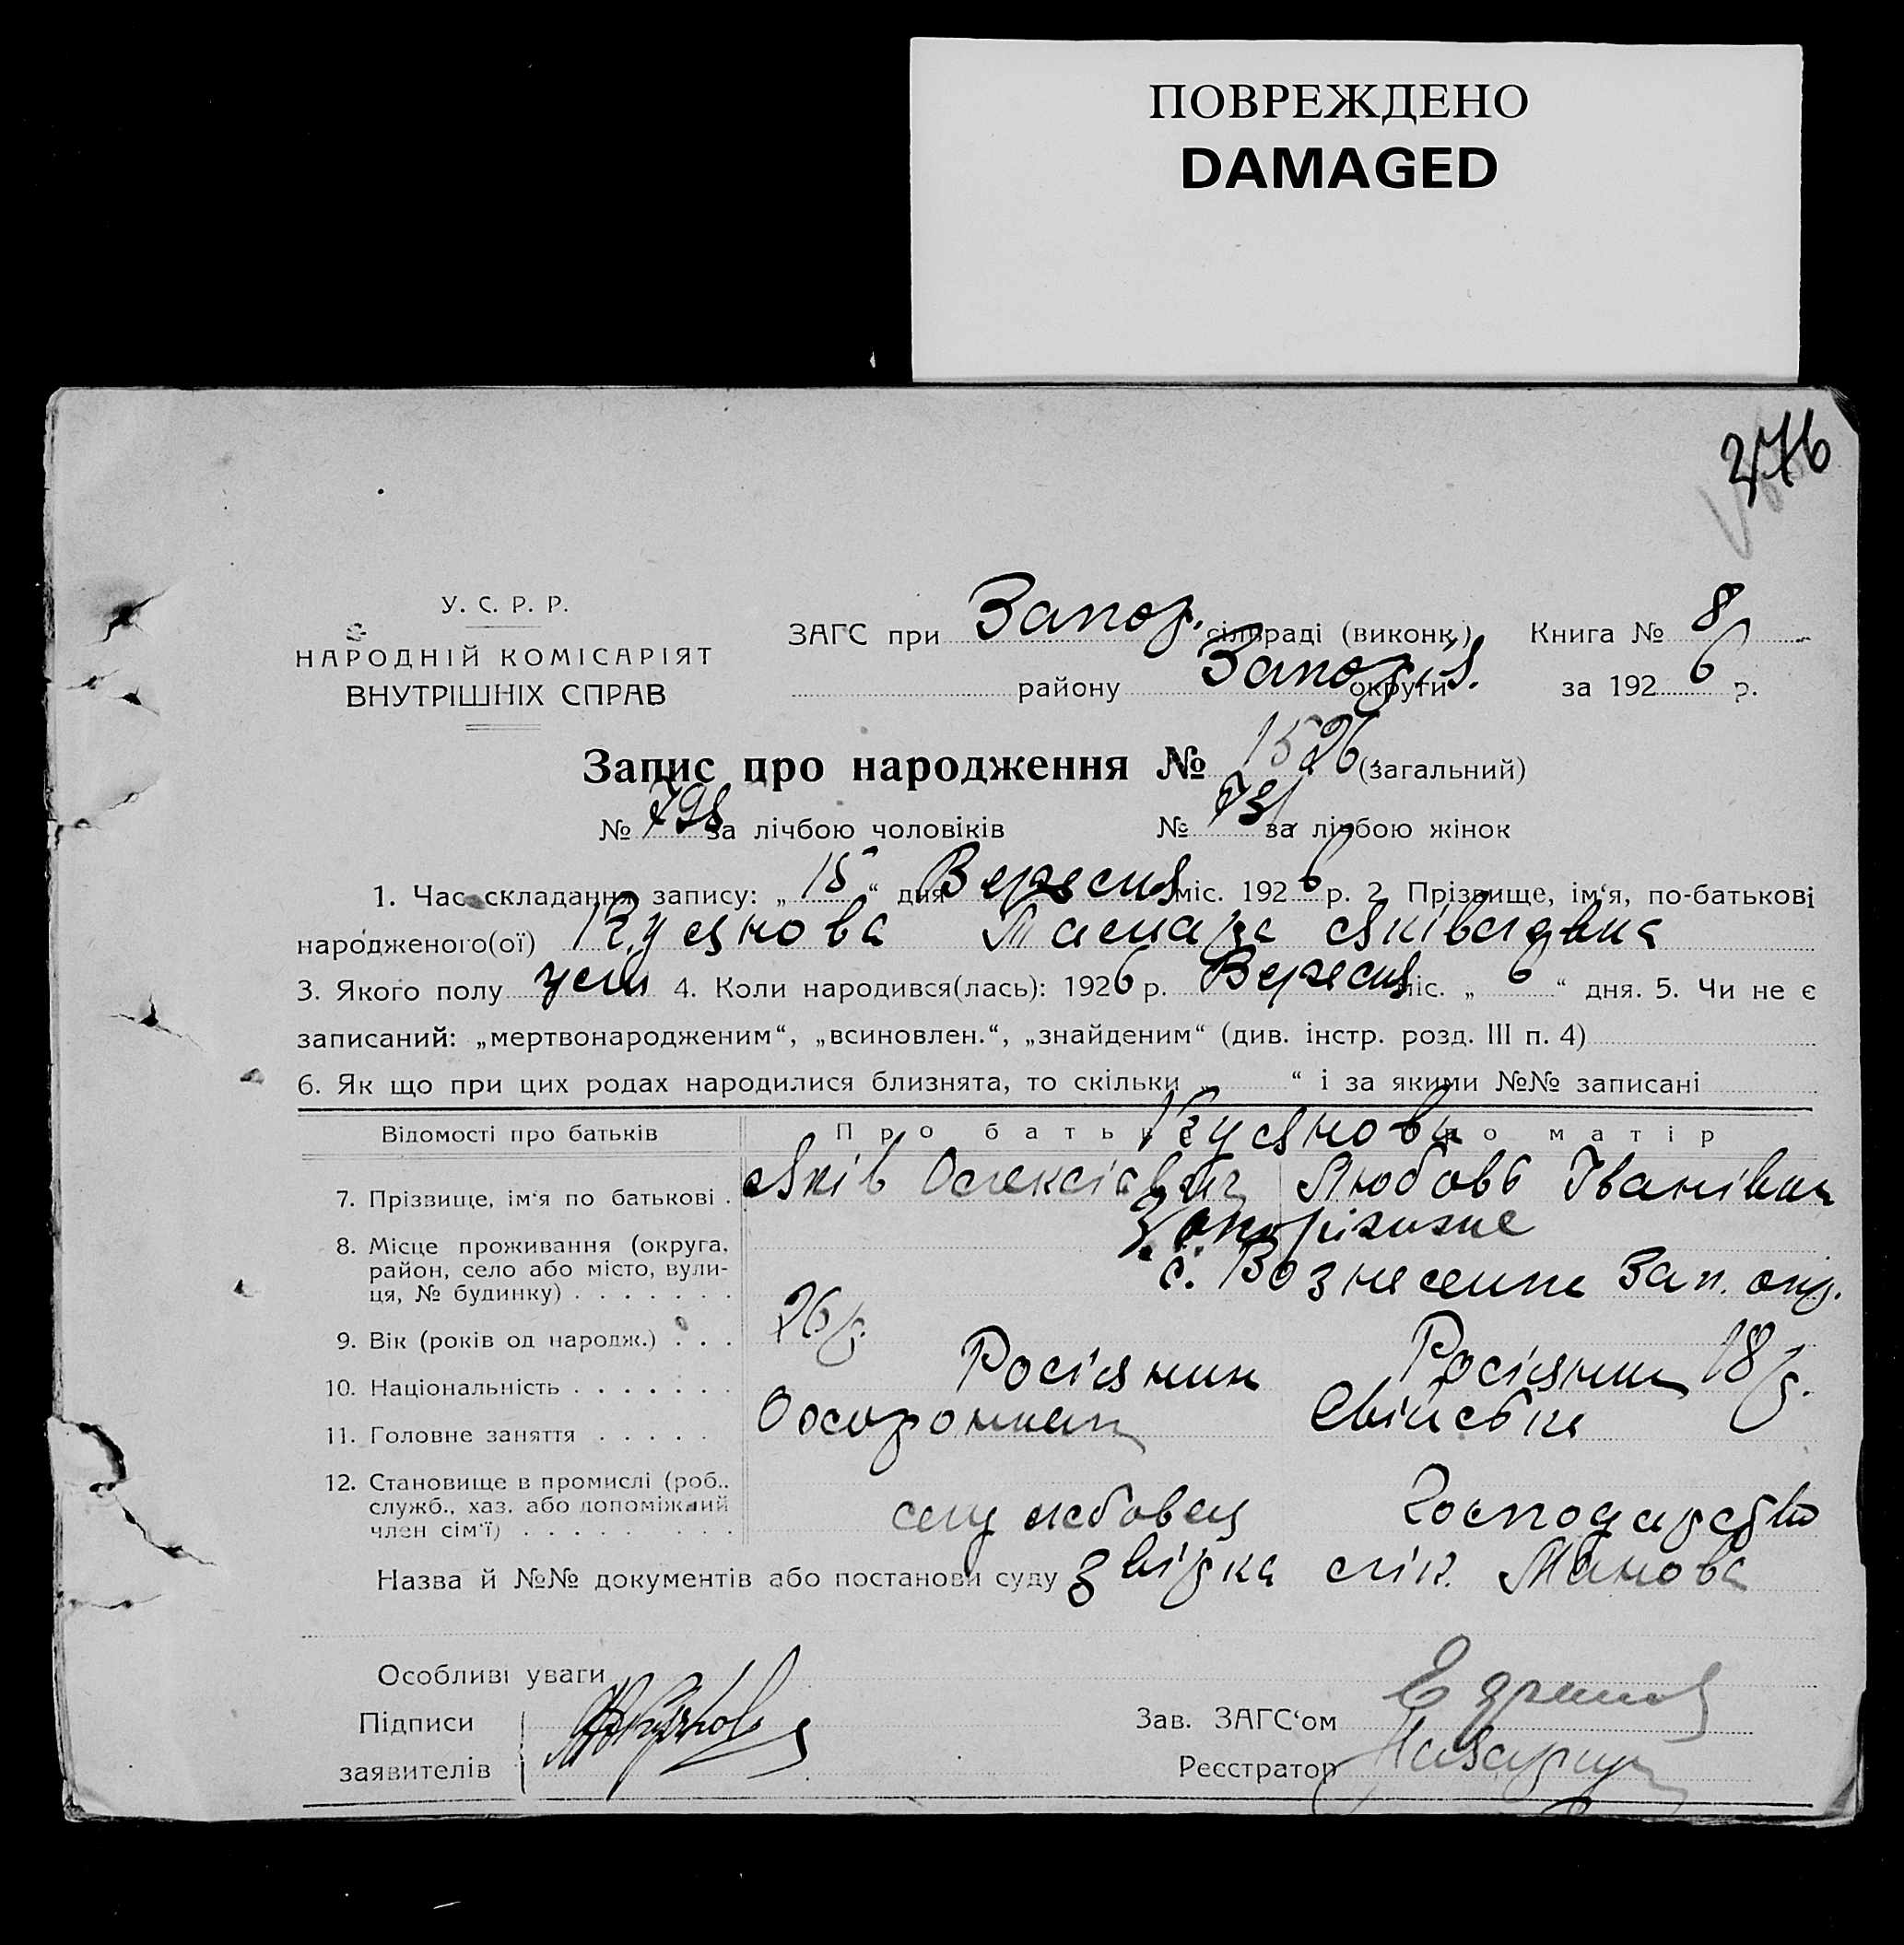 ПОВРЕЖДЕНО
DAMAGED
276
У. С. Р. Р.
НАРОДНІЙ КОМІСАРІЯТ
ВНУТРІШНІХ СПРАВ
ЗАГС при Запор. сільраді (виконк.) Книга № 8
району Запор. округи за 1926 р.
Запис про народження № 1526 (загальний)
№ 795 за лічбою чоловіків № 731 за лічбою жінок
1. Час складання запису: „15“ дня Вересня міс. 1926 р. 2. Прізвище, ім‘я, по-батькові
народженого(ої) Кузнова Тамара Яківлівна
3. Якого полу жін 4. Коли народився(лась): 1926 р. Вересня міс. „6“ дня. 5. Чи не є
записаний: „мертвонародженим“, „всиновлен.“, „знайденим“ (див. інстр. розд. III п. 4)
6. Як що при цих родах народилися близнята, то скільки „ “ і за якими №№ записані
Відомості про батьків Про батька Про матір
7. Прізвище, ім‘я по батькові . Яків Олексієвич Любовь Іванівна
8. Місце проживання (округа, Запоріжжє
район, село або місто, вули- с. Вознесенка Зап. окр.
ця, № будинку) . . . . . . .
9. Вік (років од народж.) . . . 26 р. 18 р.
10. Національність . . . . . . . Росіянин Росіянка
11. Головне заняття . . . . . Охоронник Свійське
12. Становище в промислі (роб..
служб., хаз. або допоміжний службовец господарство
член сім‘ї) . . . . . . . . .
Назва й №№ документів або постанови суду звірка лік.
Особливі уваги
Підписи
Зав. ЗАГС‘ом
заявителів
Реєстратор